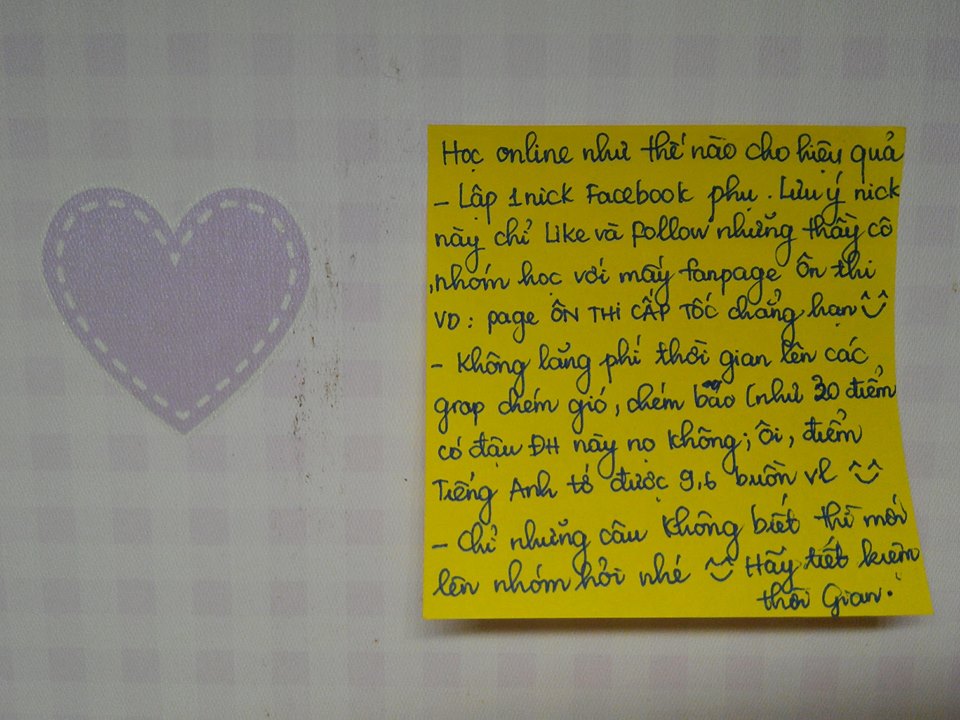 Học online như thế nào cho hiệu quả
- Lập 1 nick Facebook phụ. Lưu ý nick
này chỉ Like và follow những thầy cô
, nhóm học với mấy fanpage ôn thi
VD: page ÔN THI CẤP TỐC chẳng hạn ^^
- Không lãng phí thời gian lên các
grop chém gió, chém bão (như 20 điểm
có đậu ĐH này nọ không; ôi, điểm
Tiếng Anh tớ được 9,6 buồn vl ^^
- Chỉ những câu không biết thì mới
lên nhóm hỏi nhé ^^ Hãy tiết kiệm
thời Gian.